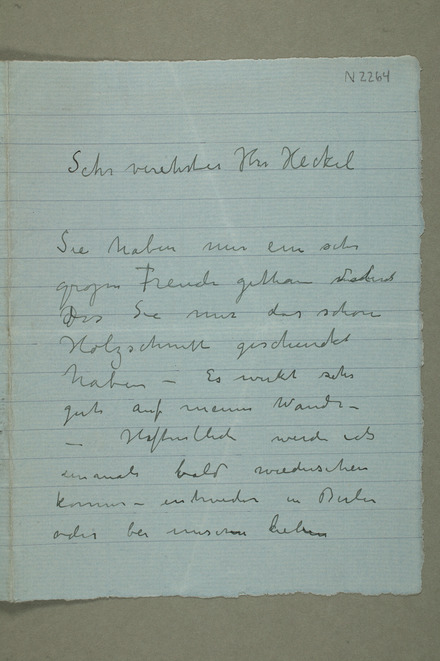 N2264
Sehr verehrter Herr Heckel
Sie haben mir ein sehr
grosse Freude gethan
Das Sie mir das schöne
Holzschnitt geschenkt
haben – Es wirkt sehr
gut auf meiner Wande –
– Hoffentlich werde ich
einmal bald wiedersehen
können – entweder in Berlin
oder bei unseren lieben